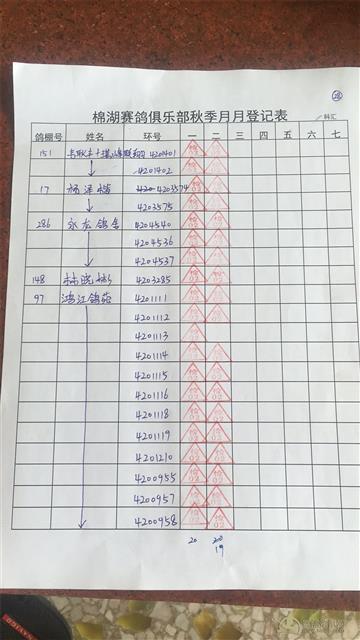 棉湖赛鸽俱乐部秋季月月登记表
鸽棚号 姓名 环号 一 二 三 四 五 六 七
151 4201401
4201402
17 4203574
4203575
286 永龙鸽舍 4204540
4204536
4204537
148 林晓彬 4203285
97 鸿江鸽苑 4201111
4201112
4201113
4201114
4201115
4201116
4201118
4201119
4201210
4200955
4200957
4200958
20
19